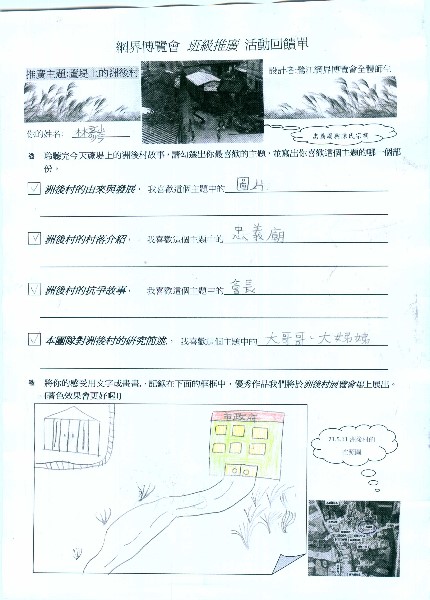 網界博覽會 班級推廣 活動回饋單
推廣主題:蘆堤上的洲後村
你的姓名:
聆聽完今天蘆堤上的洲後村故事，請勾選出你最喜歡的主題，並寫出你喜歡這個主題的哪一個部
份。
洲後村的由來與發展，我喜歡這個主題中的 圖片
洲後村的村落介紹，我喜歡這個主題中的 忠義廟
洲後村的抗爭故事，我喜歡這個主題中的 會長
本團隊對洲後村的研究態度，我喜歡這個主題中的 大哥哥、大姊姊
將你的感受用文字或畫畫，記錄在下面的框框中，優秀作品我們將於洲後村展覽會場上展出。
(著色效果會更好喔!)
市政府